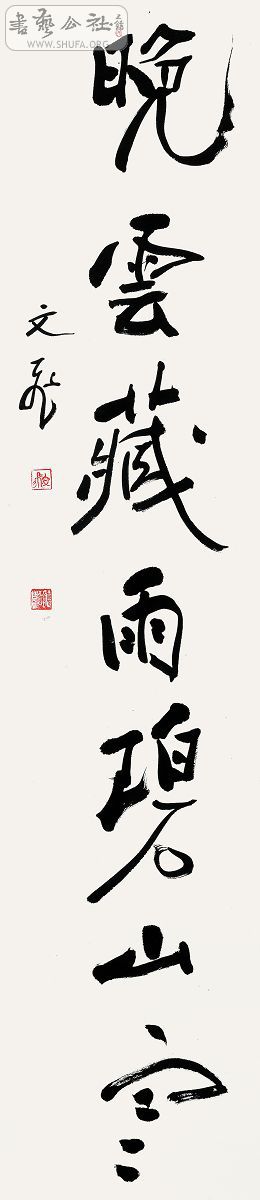 書藝公社
WWW.SHUFA.ORG
晚雲藏雨碧山寒
文